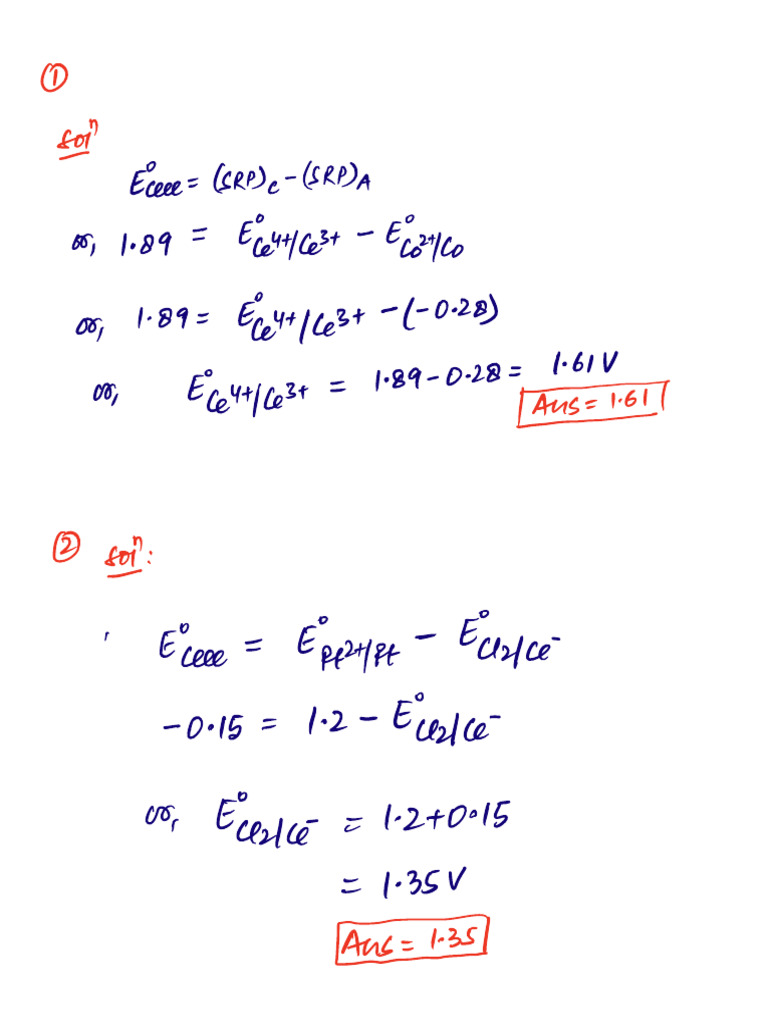 ①
Solⁿ
E°cell = (SRP)c - (SRP)A
or, 1.89 = E°Ce⁴⁺/Ce³⁺ - E°Co²⁺/Co
or, 1.89 = E°Ce⁴⁺/Ce³⁺ - (-0.28)
or, E°Ce⁴⁺/Ce³⁺ = 1.89 - 0.28 = 1.61 V
Ans = 1.61
② Solⁿ:
E°cell = E°Pt²⁺/Pt - E°Cl₂/Cl⁻
-0.15 = 1.2 - E°Cl₂/Cl⁻
or, E°Cl₂/Cl⁻ = 1.2+0.15
= 1.35 V
Ans = 1.35